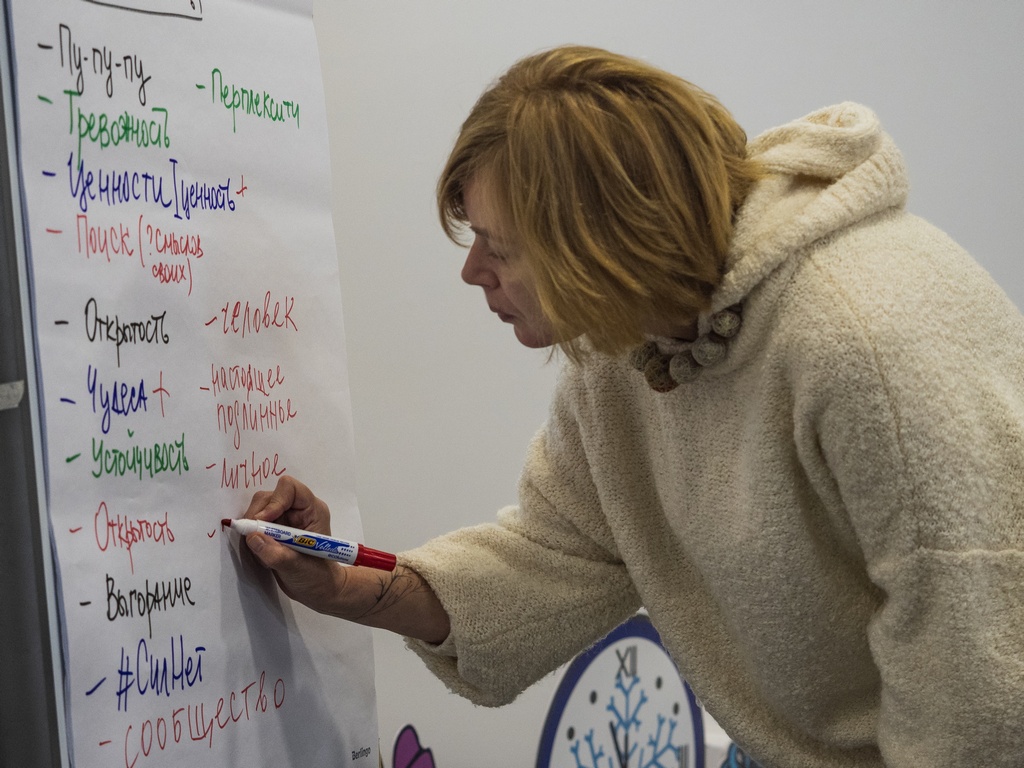 - Пу-пу-пу
- Перплексити
- Тревожность
- Ценности [ценность +
- Поиск (? смыслов
своих)
- Открытость
- человек
- Чудеса +
- настоящее
подлинные
- Устойчивость
- личное
- Открытость
-
- Выгорание
- #СилНет
- сообщество
Berlingo
BIC Velleda
XII